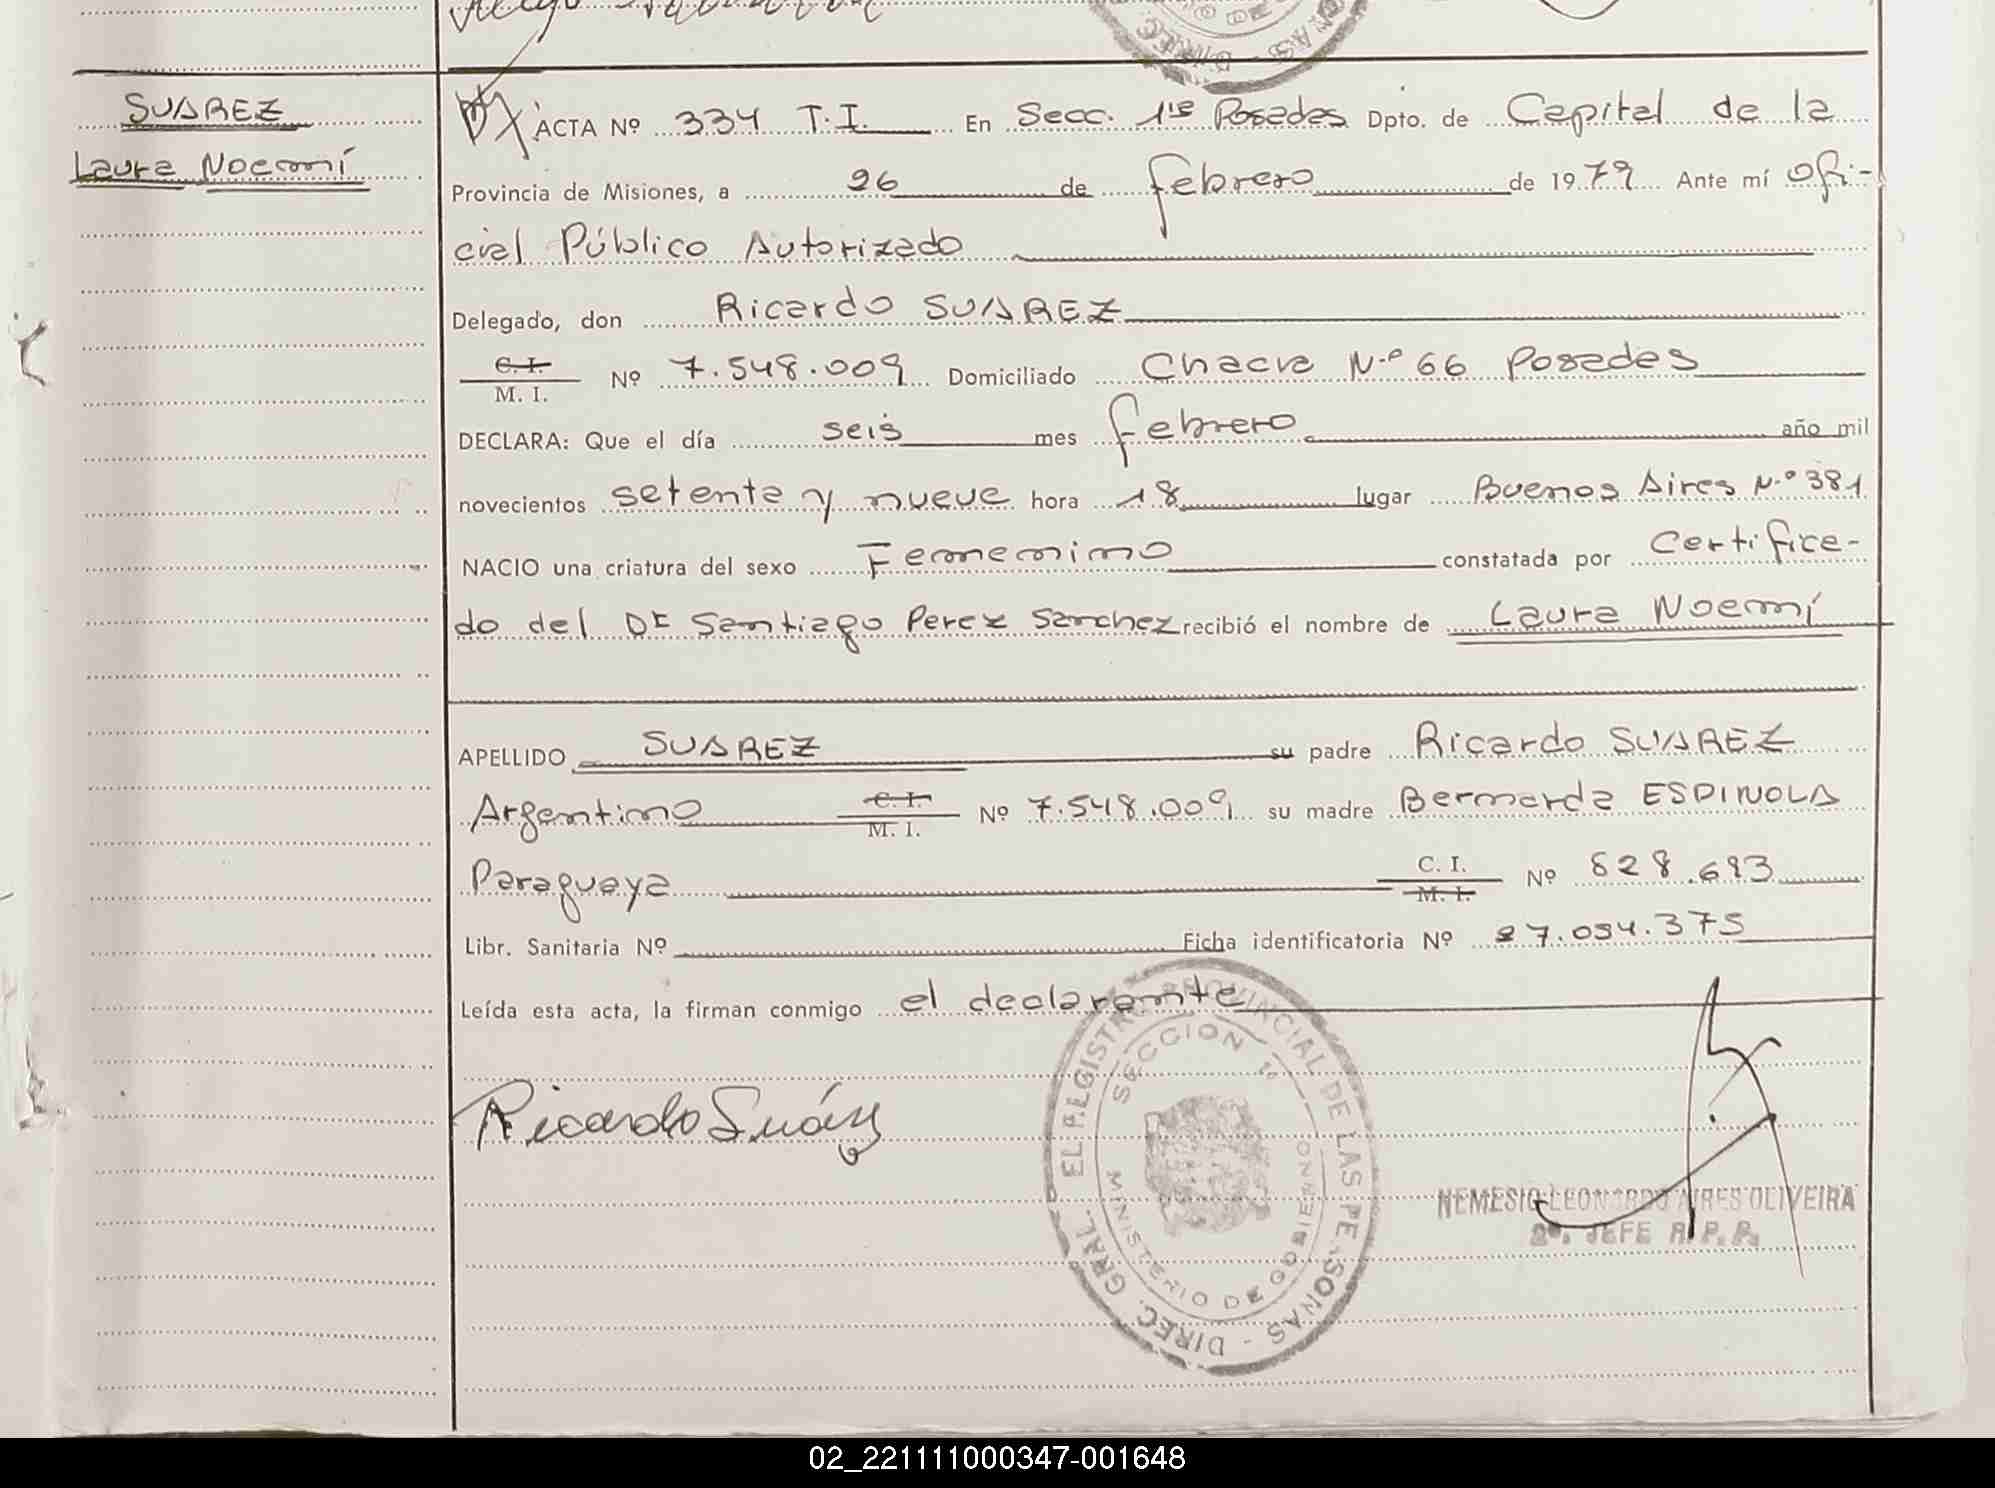 SUAREZ
Laura Noemí
ACTA Nº 334 T.I. En Secc. 1ra Posadas Dpto. de Capital de la
Provincia de Misiones, a 26 de febrero de 1979 Ante mí ofi-
cial Público Autorizado
Delegado, don Ricardo SUAREZ
C. I.
M. I. Nº 7.548.009 Domiciliado Chacra N.º 66 Posadas
DECLARA: Que el día seis mes febrero año mil
novecientos setenta y nueve hora 18 lugar Buenos Aires N.º 381
NACIO una criatura del sexo Femenino constatada por Certifica-
do del Dr Santiago Perez Sanchez recibió el nombre de Laura Noemí
APELLIDO SUAREZ su padre Ricardo SUAREZ
Argentino C. I.
M. I. Nº 7.548.009 su madre Bernarda ESPINOLA
Paraguaya C. I.
M. I. Nº 828.693
Libr. Sanitaria Nº Ficha identificatoria Nº 27.034.375
Leída esta acta, la firman conmigo el declarante
Ricardo Suárez
DIREC. GRAL. PROVINCIAL DE LAS PERSONAS
SECCION 1º
MINISTERIO DE GOBIERNO
NEMESIO LEONARDO AIRES OLIVEIRA
2º. JEFE R. P. P.
02_221111000347-001648